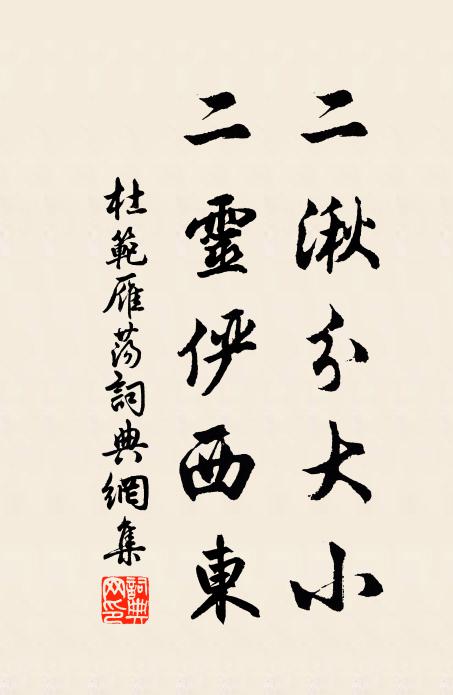 二湫分大小
二靈俨西東
杜範雁荡詞典網集
詞典网印